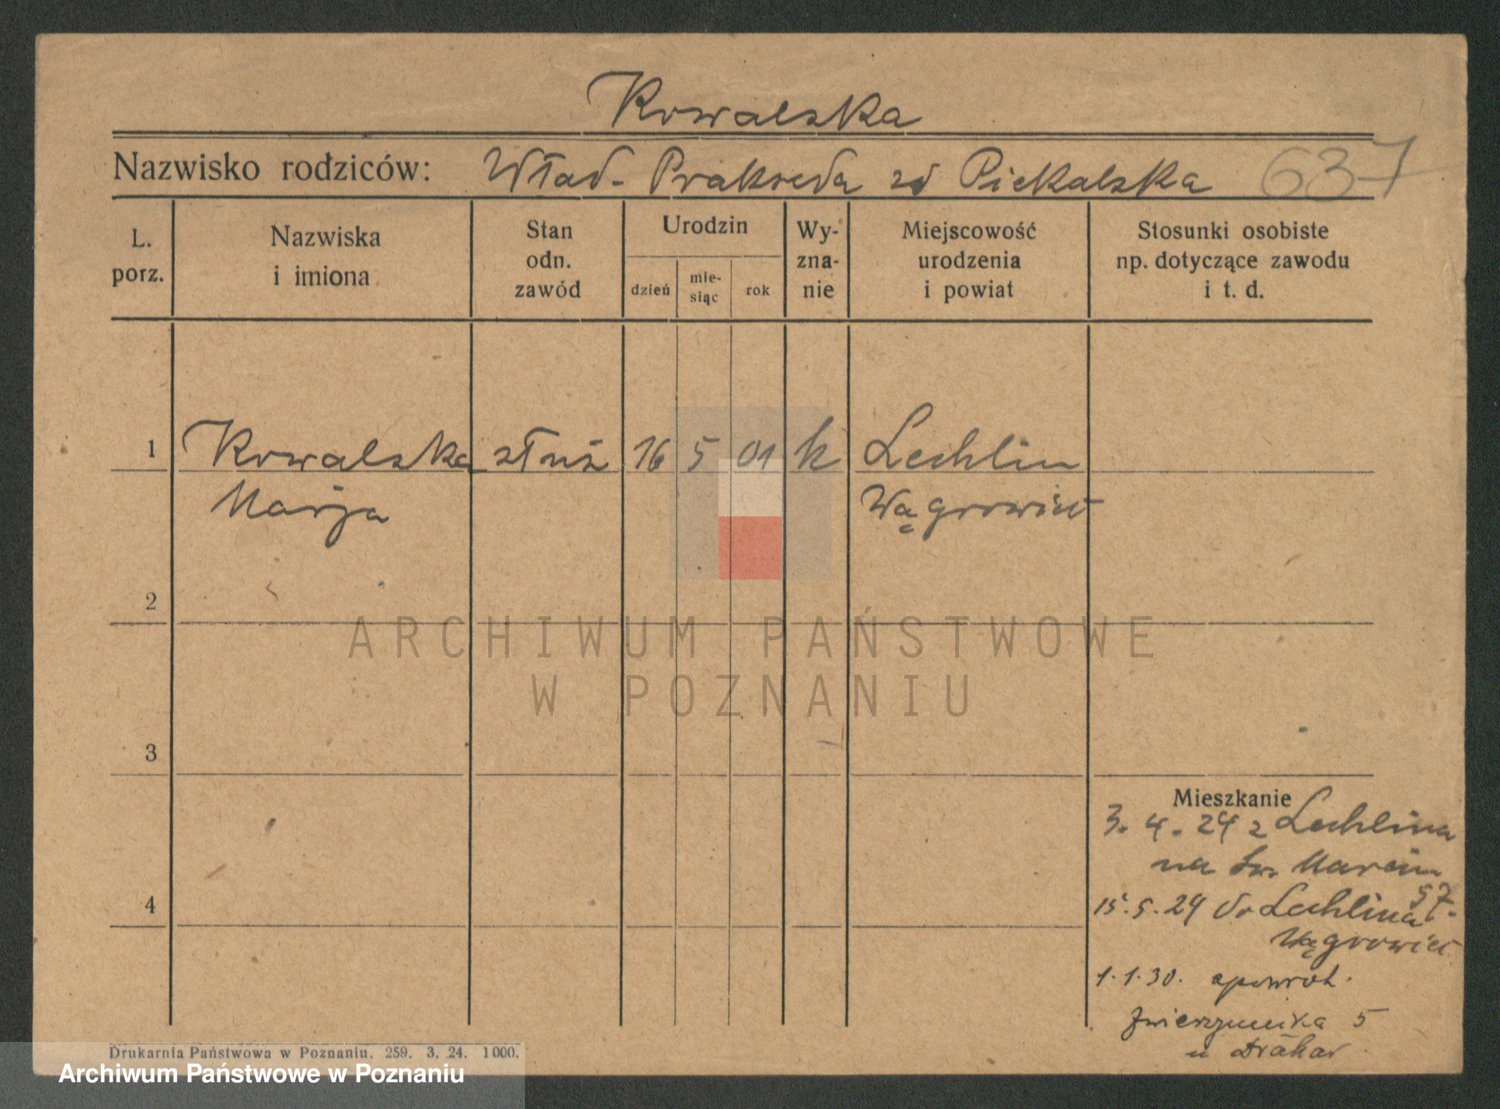 Kowalska
Nazwisko rodziców: Wład. Prakseda zd Piekalska 637
L. porz.
Nazwiska i imiona
Stan odn. zawód
Urodzin
dzień
mie-siąc
rok
Wy-zna-nie
Miejscowość urodzenia i powiat
Stosunki osobiste np. dotyczące zawodu i t. d.
1 Kowalska służ 16 5 01 k Lechlin
Marja Wągrowiec
2
ARCHIWUM PAŃSTWOWE
W POZNANIU
3
Mieszkanie
3. 4. 24 z Lechlina
na Św Marcin
57.
4
15.5.24 do Lechlina
Wągrowiec
1.1.30. spowrot.
Zwierzyniecka 5
u
Drukarnia Państwowa w Poznaniu. 259. 3. 24. 1000.
Archiwum Państwowe w Poznaniu